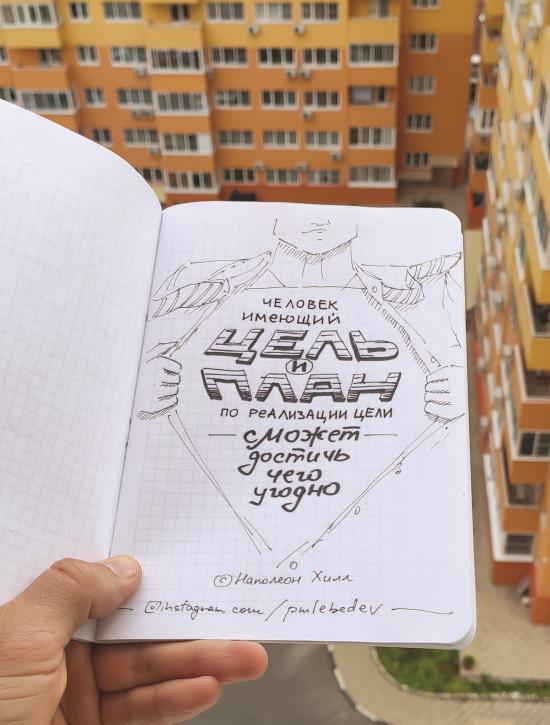 ЧЕЛОВЕК
ИМЕЮЩИЙ
ЦЕЛЬ
И
ПЛАН
ПО РЕАЛИЗАЦИИ ЦЕЛИ
— сможет —
достичь
чего
угодно
© Наполеон Хилл
— @instagram.com/pmlebedev —